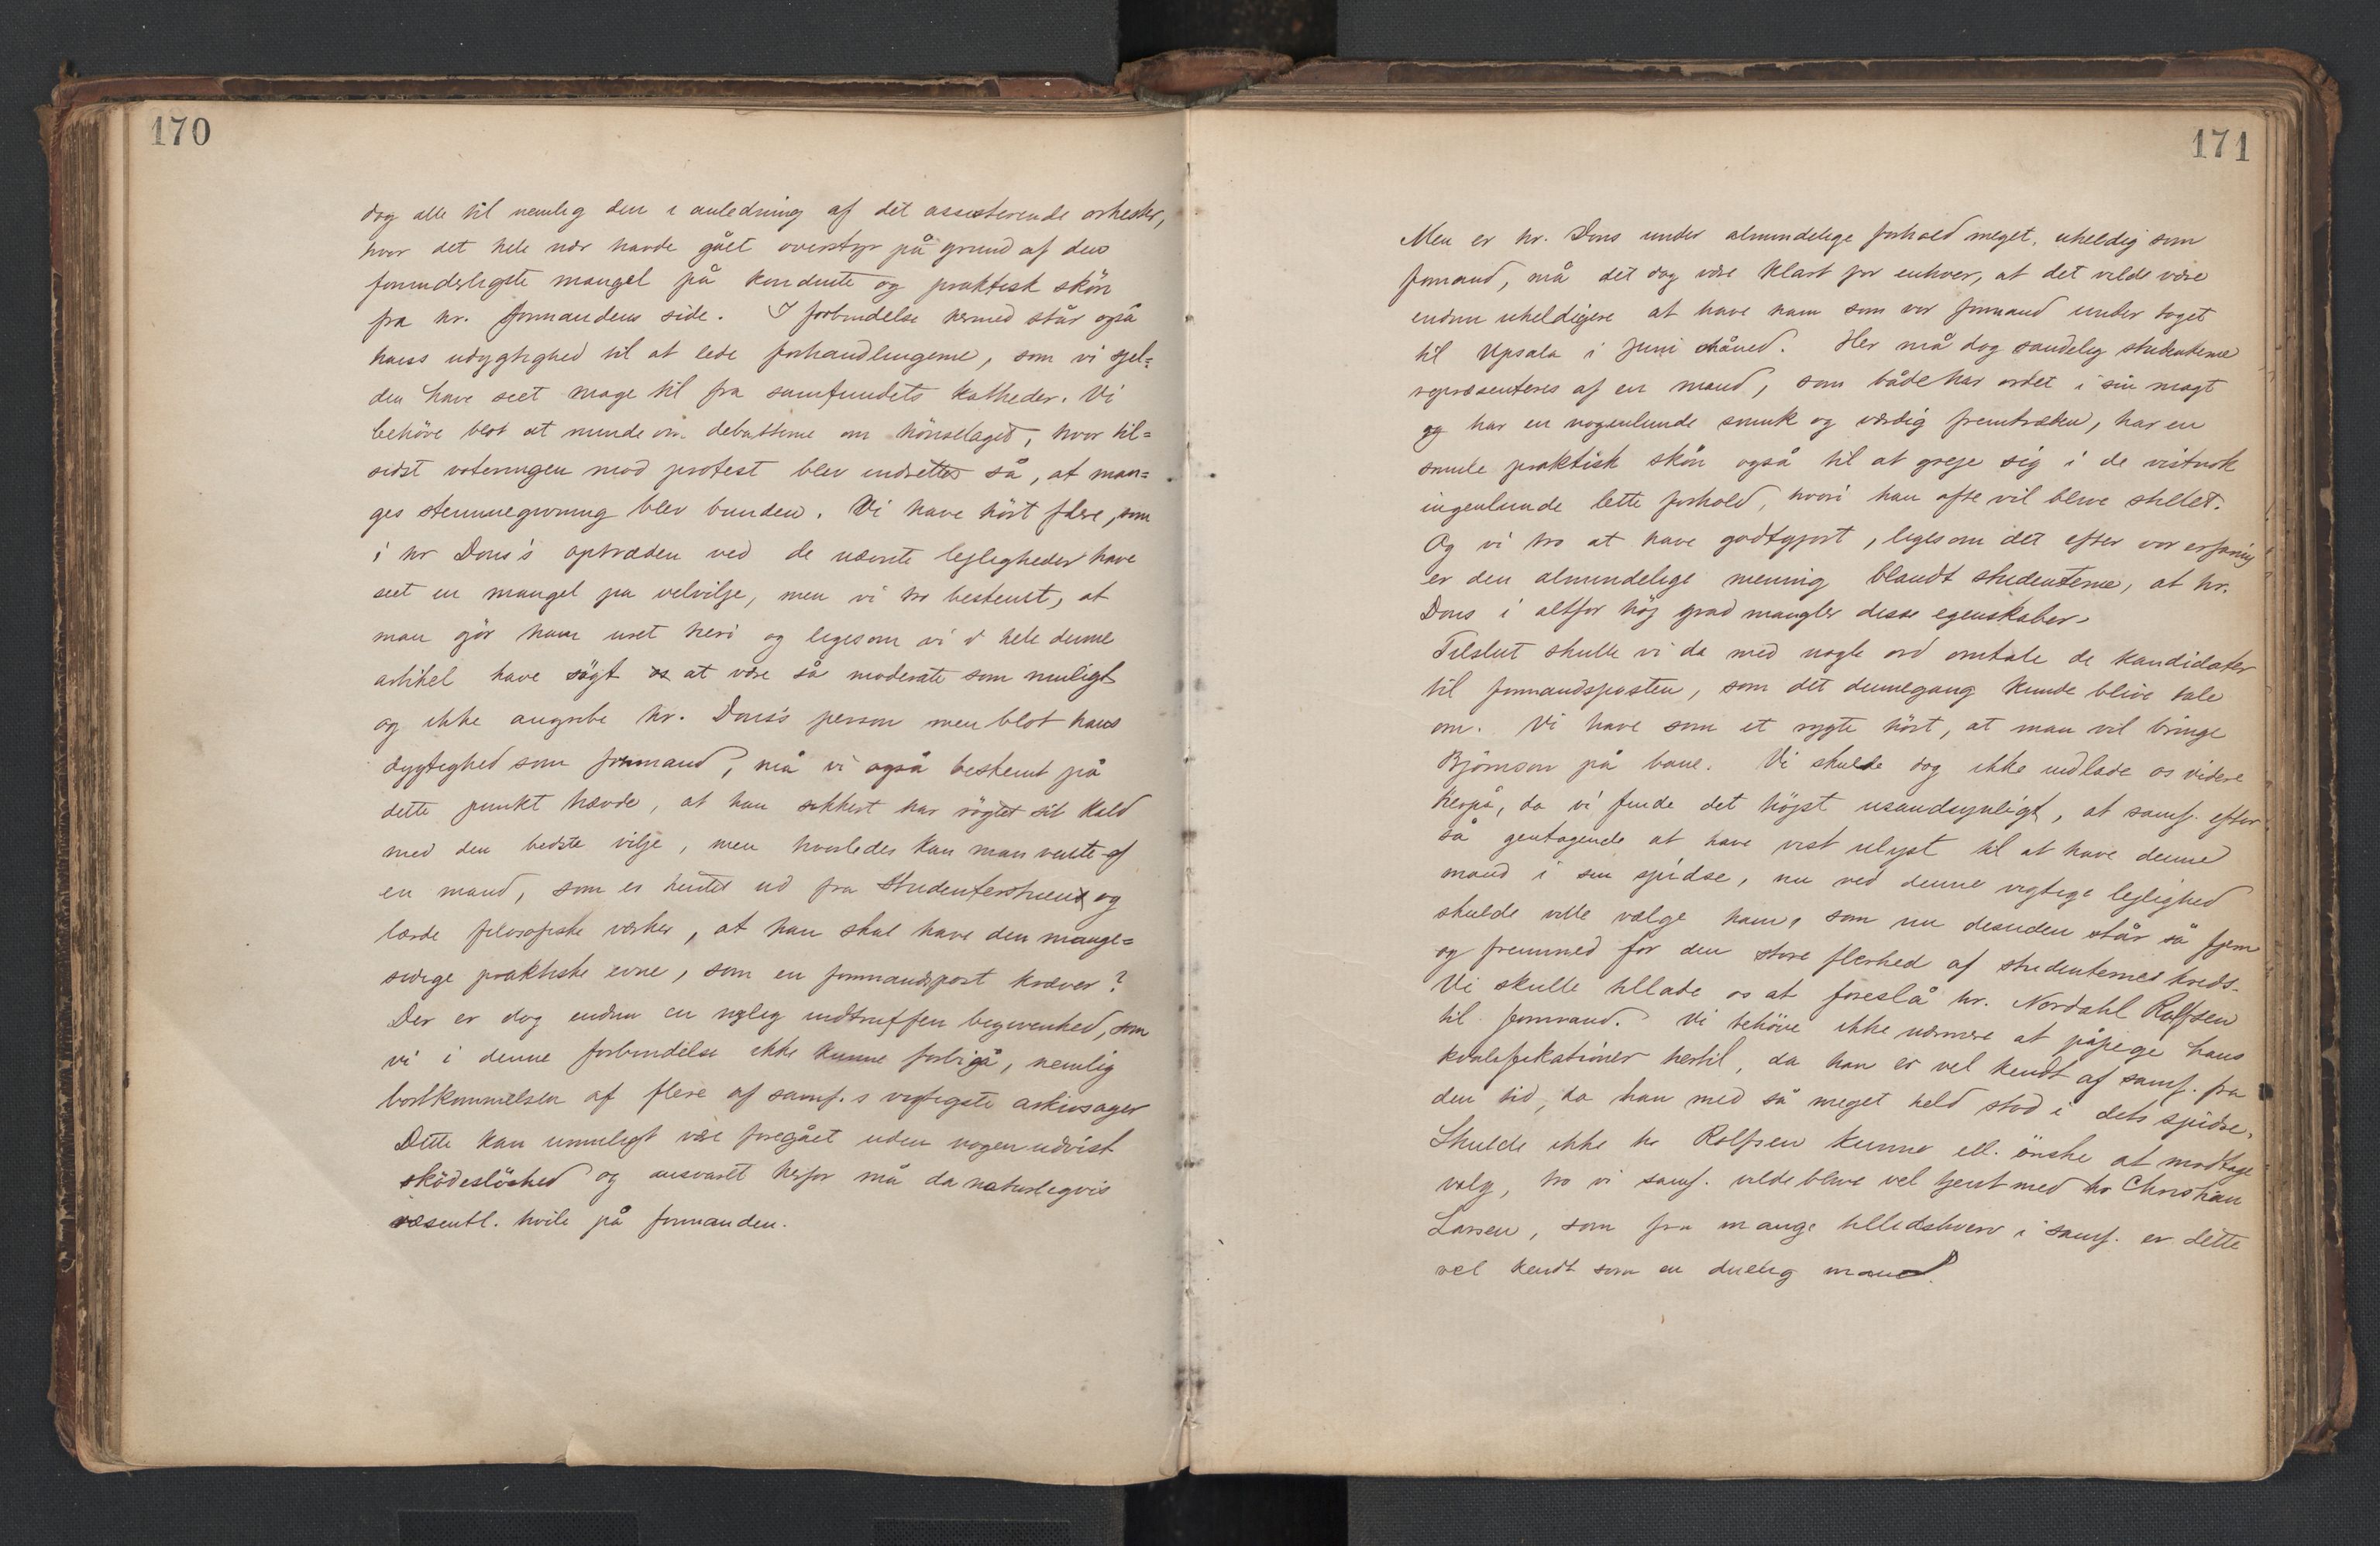 170
dog alle til nemlig den i anledning af det assisterende orkester,
hvor det hele nær havde gået overstyr på grund af den
forunderligste mangel på konduite og praktisk skön
fra hr. formandens side. I forbindelse hermed står også
hans udygtighed til at lede forhandlingerne, som vi sjel=
den have seet mage til fra samfundets katheder. Vi
behöve blot at minde om debatterne om hönselaget, hvor til=
sidst voteringen mod protest blev indrettet så, at man=
ges stemmegivning blev bunden. Vi have hört flere, som
i hr Dons's optræden ved de nævnte lejligheder have
seet en mangel på velvilje, men vi tro bestemt, at
man gör ham uret heri og ligesom vi i hele denne
artikel have sögt os at være så moderate som muligt
og ikke angribe hr. Dons's person men blot hans
dygtighed som formand, må vi også bestemt på
dette punkt hævde, at han sikkert har rögtet sit kald
med den bedste vilje, men hvorledes kan man vente af
en mand, som er hentet ud fra Studenterstuen og
lærde filosofiske værker, at han skal have den mange=
sidige praktiske evne, som en formandspost kræver?
Der er dog endnu en nylig indtruffen begivenhed, som
vi i denne forbindelse ikke kunne forbigå, nemlig
bortkommelsen af flere af samf.s vigtigste arkivsager
Dette kan umuligt være foregået uden nogen udvist
sködeslöshed og ansvaret herfor må da naturligvis
væsentl. hvile på formanden.
171
Men er hr. Dons under almindelige forhold meget uheldig som
formand, må det dog være klart for enhver, at det vilde være
endnu uheldigere at have ham som vor formand under toget
til Upsala i juni måned. Her må dog sandelig studenterne
repræsenteres af en mand, som både har ordet i sin magt
og har en nogenlunde smuk og værdig fremtræden, har en
smule praktisk skön også til at greje sig i de vistnok
ingenlunde lette forhold, hvori han ofte vil blive stillet.
Og vi tro at have godtgjort, ligesom det efter vor erfaring
er den almindelige mening blandt studenterne, at hr.
Dons i altfor höj grad mangler disse egenskaber.
Tilslut skulle vi da med nogle ord omtale de kandidater
til formandsposten, som det dennegang kunde blive tale
om. Vi have som et rygte hört, at man vil bringe
Björnson på bane. Vi skulde dog ikke indlade os videre
herpå, da vi finde det höjst usandsynligt, at samf. efter
så gentagende at have vist ulyst til at have denne
mand i sin spidse, nu ved denne vigtige lejlighed
skulde ville vælge ham, som nu desuden står så fjern
og fremmed for den store flerhed af studenternes kreds.
Vi skulle tillade os at foreslå hr. Nordahl Rolfsen
til formand. Vi behöve ikke nærmere at påpege hans
kvalifikationer hertil, da han er vel kendt af samf. fra
den tid, da han med så meget held stod i dets spidse.
Skulde ikke hr Rolfsen kunne ell. önske at modtage
valg, tro vi samf. vilde blive vel tjent med hr Christian
Larsen, som fra mange tillidshverv i samf. er dette
vel kendt som en duelig mand.